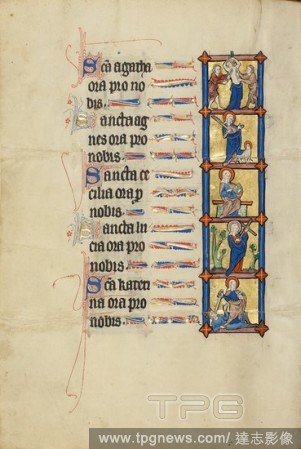 Sca agatha
ora pro no
bis.
Sancta ag
nes ora pro
nobis.
Sancta ce
cilia ora p
nobis.
Sancta lu
cia ora pro
nobis.
Sca kateri
na ora pro
nobis.
TPG
www.tpgnews.com/ 達志影像